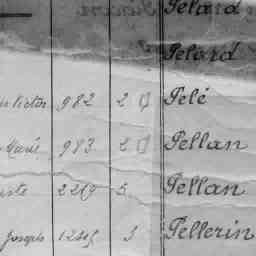 Pelard
Pelard
Victor 982 2 Pelé
Marie 983 2 Pellan
2219 5 Pellan
Joseph 1245 3 Pellerin